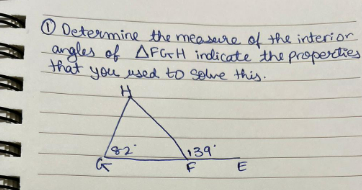 ① Determine the measure of the interior
angles of △FGH indicate the properties
that you used to solve this.
H
82° 139°
G F E